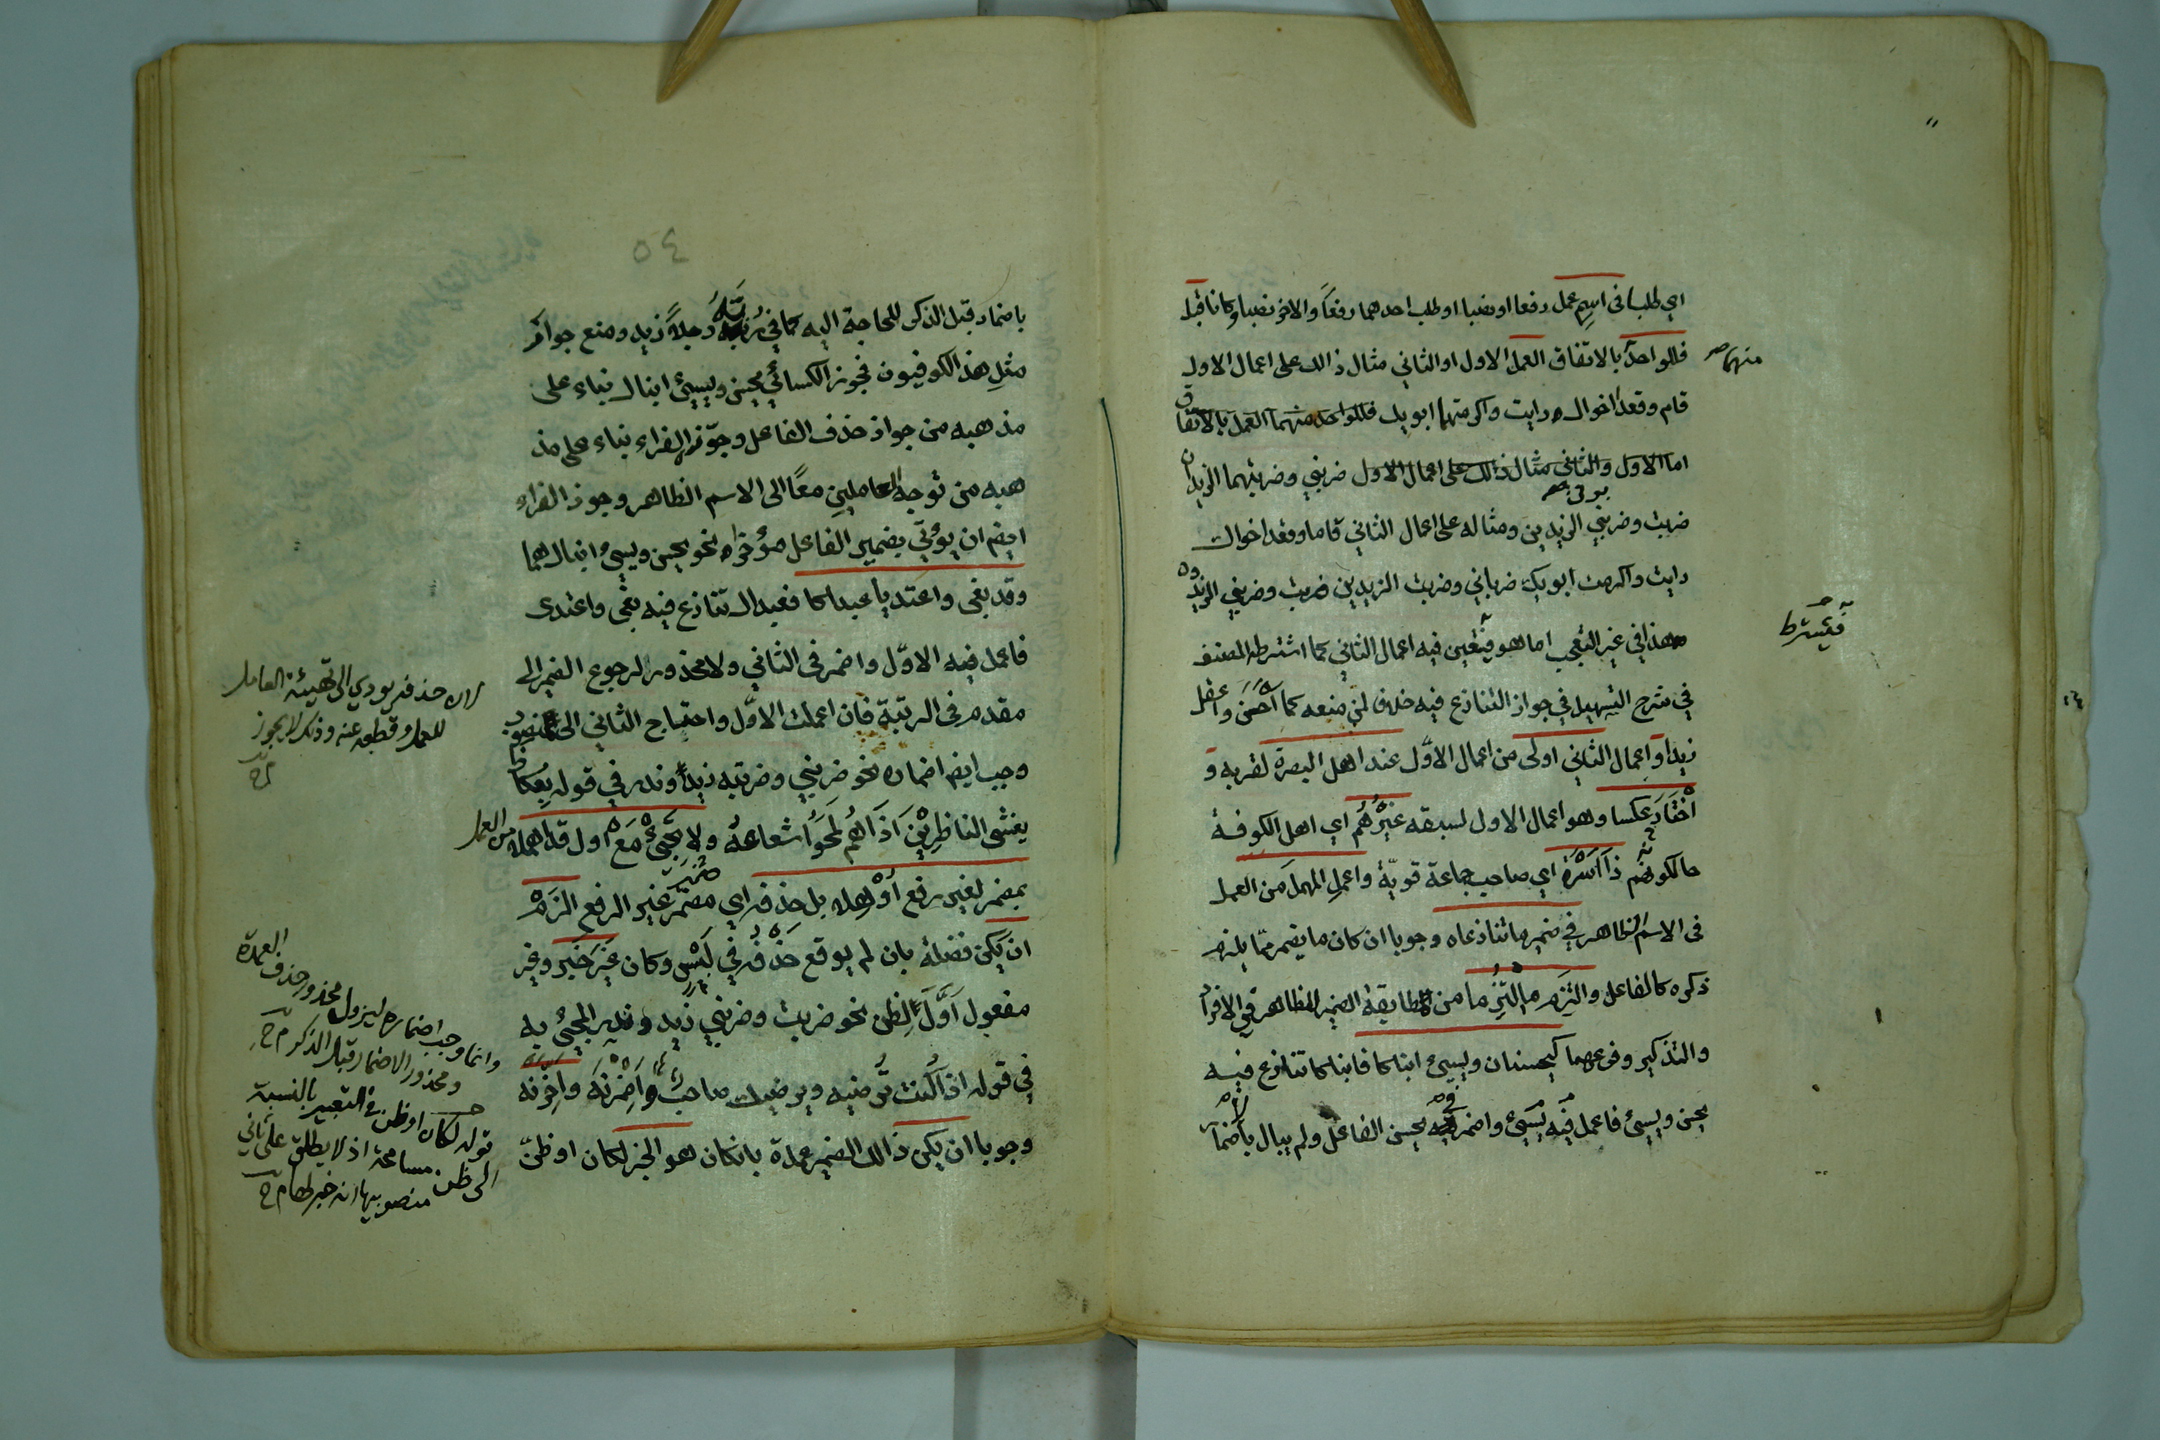 اي طلبا في اسم عمل رفعا او نصبا او طلب احدهما رفعاً والاخر نصبا وكانا قبل
فللواحد بالاتفاق العمل الاول او الثاني مثال ذالك على اعمال الاول
منهما صح
قام وقعدا اخواك رايت واكرمتهما ابويك فللواحد منهما العمل بالاتفاق
اما الاول والثاني مثال ذالك على اعمال الاول ضربني وضربتهما الزيدان
ضربت وضربني الزيدين ومثاله على اعمال الثاني قاما وقعد اخواك
رايت واكرمت ابويك ضرباني وضربت الزيدين ضربت وضربني الزيدون
هذا في غير التعجب اما هو فيتعين فيه اعمال الثاني كما اشترطه المصنف
فيشترط
في شرح التسهيل في جواز التنازع فيه خلاف لمن منعه كما احسن واعقل
زيدا واعمال الثاني اولى من اعمال الاوّل عند اهل البصرة لقربه و
اختار عكسا وهو اعمال الاول لسبقه غيرهم اي اهل الكوفة
حالكونهم ذا اسره اي صاحب جماعة قويّة واعمل المهمل من العمل
في الاسم الظاهر في ضمير ما تنازعاه وجوبا ان كان ما يضمر ممّا يلزم
ذكره كالفاعل والتزم ما التزما من مطابقة الضمير للظاهر في الافراد
والتذكير وفرعهما كيحسنان ويسيئ ابناكا فابناكا تنازع فيه
يحسن ويسيئ فاعمل فيه يسيئ واضمر في يحسن الفاعل ولم يبال باضمار
٥٤
باضمار قبل الذكر للحاجة اليه كما في ربّه رجلاً زيد ومنع جواز
مثل هذا الكوفيون فجوز الكسائي يحسن ويسيئ ابناك بناء على
مذهبه من جواز حذف الفاعل وجوّزه الفراء بناء على مذ
هبه من توجه العاملين معاً الى الاسم الظاهر وجوز الفراء
ايضم ان يؤتي بضمير الفاعل مؤخراه نحو يحسن ويسيئ ابناك هما
وقد بغى واعتديا عبداكا فعبداك تنازع فيه بغى واعتدى
فاعمل فيه الاوّل واضمر في الثاني ولا محذور لرجوع الضمير الى
مقدم في الرتبة فان اعملت الاوّل واحتاج الثاني الى منصوب
وجب ايضم اضماره نحو ضربني وضربته زيد وندر في قوله بعكاظ
يغشى الناظرين اذا هم لمحوا شعاعه ولا تجيئ مع اول قد اهملا من العمل
بمضمر لغير رفع اوهلا بل حذفه اي مضمر غير الرفع الزم
ان يكن فضلة بان لم يوقع حذفه في لبس وكان غير خبر وغير
مفعول اوّل لظن نحو ضربت وضربني زيد وندر المجيئ به
في قوله اذا كنت ترضيه ويرضيك صاحب واضمرنه واخرنه
وجوبا ان يكن ذالك الضمير عمدة بان كان هو الخبر لكان او ظنّ
لان حذفه يودي الى تهيئة العامل
للعمل وقطعه عنه وذلك لا يجوز
م ح
وانما وجب اضماره ليزول محذور حذف العمدة
ومحذور الاضمار قبل الذكر م ح
قوله لكان او ظن في التعبير بالنسبة
الى ظن مسامحة اذ لا يطلق على ثاني
منصوبيها انه خبر لها م ح